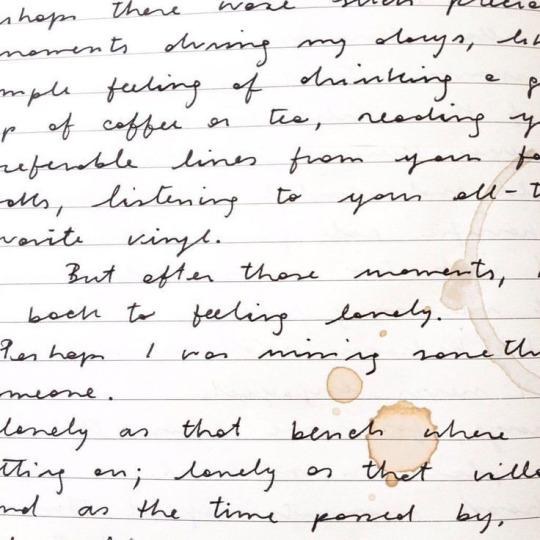 rhaps there were such precio
moments during my days, li
mple feeling of drinking a g
p of coffee or tea, reading y
referable lines from your fa
ooks, listening to your all-t
vorite vinyl.
But after those moments,
back to feeling lonely.
Perhaps I was missing someth
meone.
lonely as that bench where
tting on; lonely as that villa
nd as the time passed by,